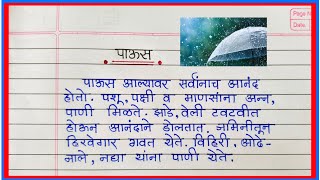 Page No
Date
पाऊस
पाऊस आल्यावर सर्वांनाच आनंद
होतो. पशू, पक्षी व माणसांना अन्न,
पाणी मिळते. झाडे, वेली टवटवीत
होऊन आनंदाने डोलतात. जमिनीतून
हिरवेगार गवत येते. विहिरी, ओढे-
नाले, नद्या यांना पाणी येते.